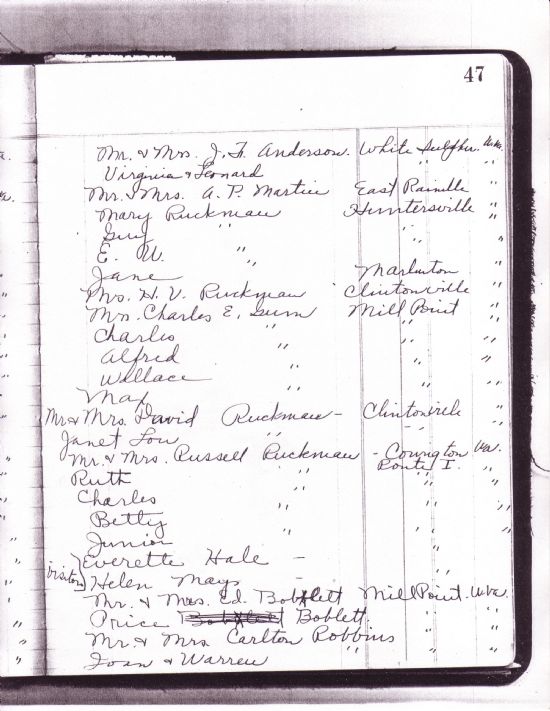 47
Mr. & Mrs. J. F. Anderson. White Sulphur. W.Va.
Virginia & Leonard " "
Mr. & Mrs. A. P. Martin East Rainelle "
Mary Ruckman Huntersville "
Guy " " "
E. W. " " "
Jane Marlinton "
Mrs. H. V. Ruckman Clintonville "
Mrs. Charles E. Gum Mill Point "
Charles " " "
Alfred " " "
Wallace " " "
Max " " "
Mr & Mrs. David Ruckman - Clintonville "
Janet Lou " " "
Mr. & Mrs. Russell Ruckman - Covington Va.
Ruth " Route 1. "
Charles " " "
Betty " " "
Junior " "
Visitors } Everette Hale - "
Helen Mays - "
Mr. & Mrs. Ed. Boblett Mill Point. W.Va.
Price Boblett " "
Mr. & Mrs. Carlton Robbins " "
Joan & Warren " " "